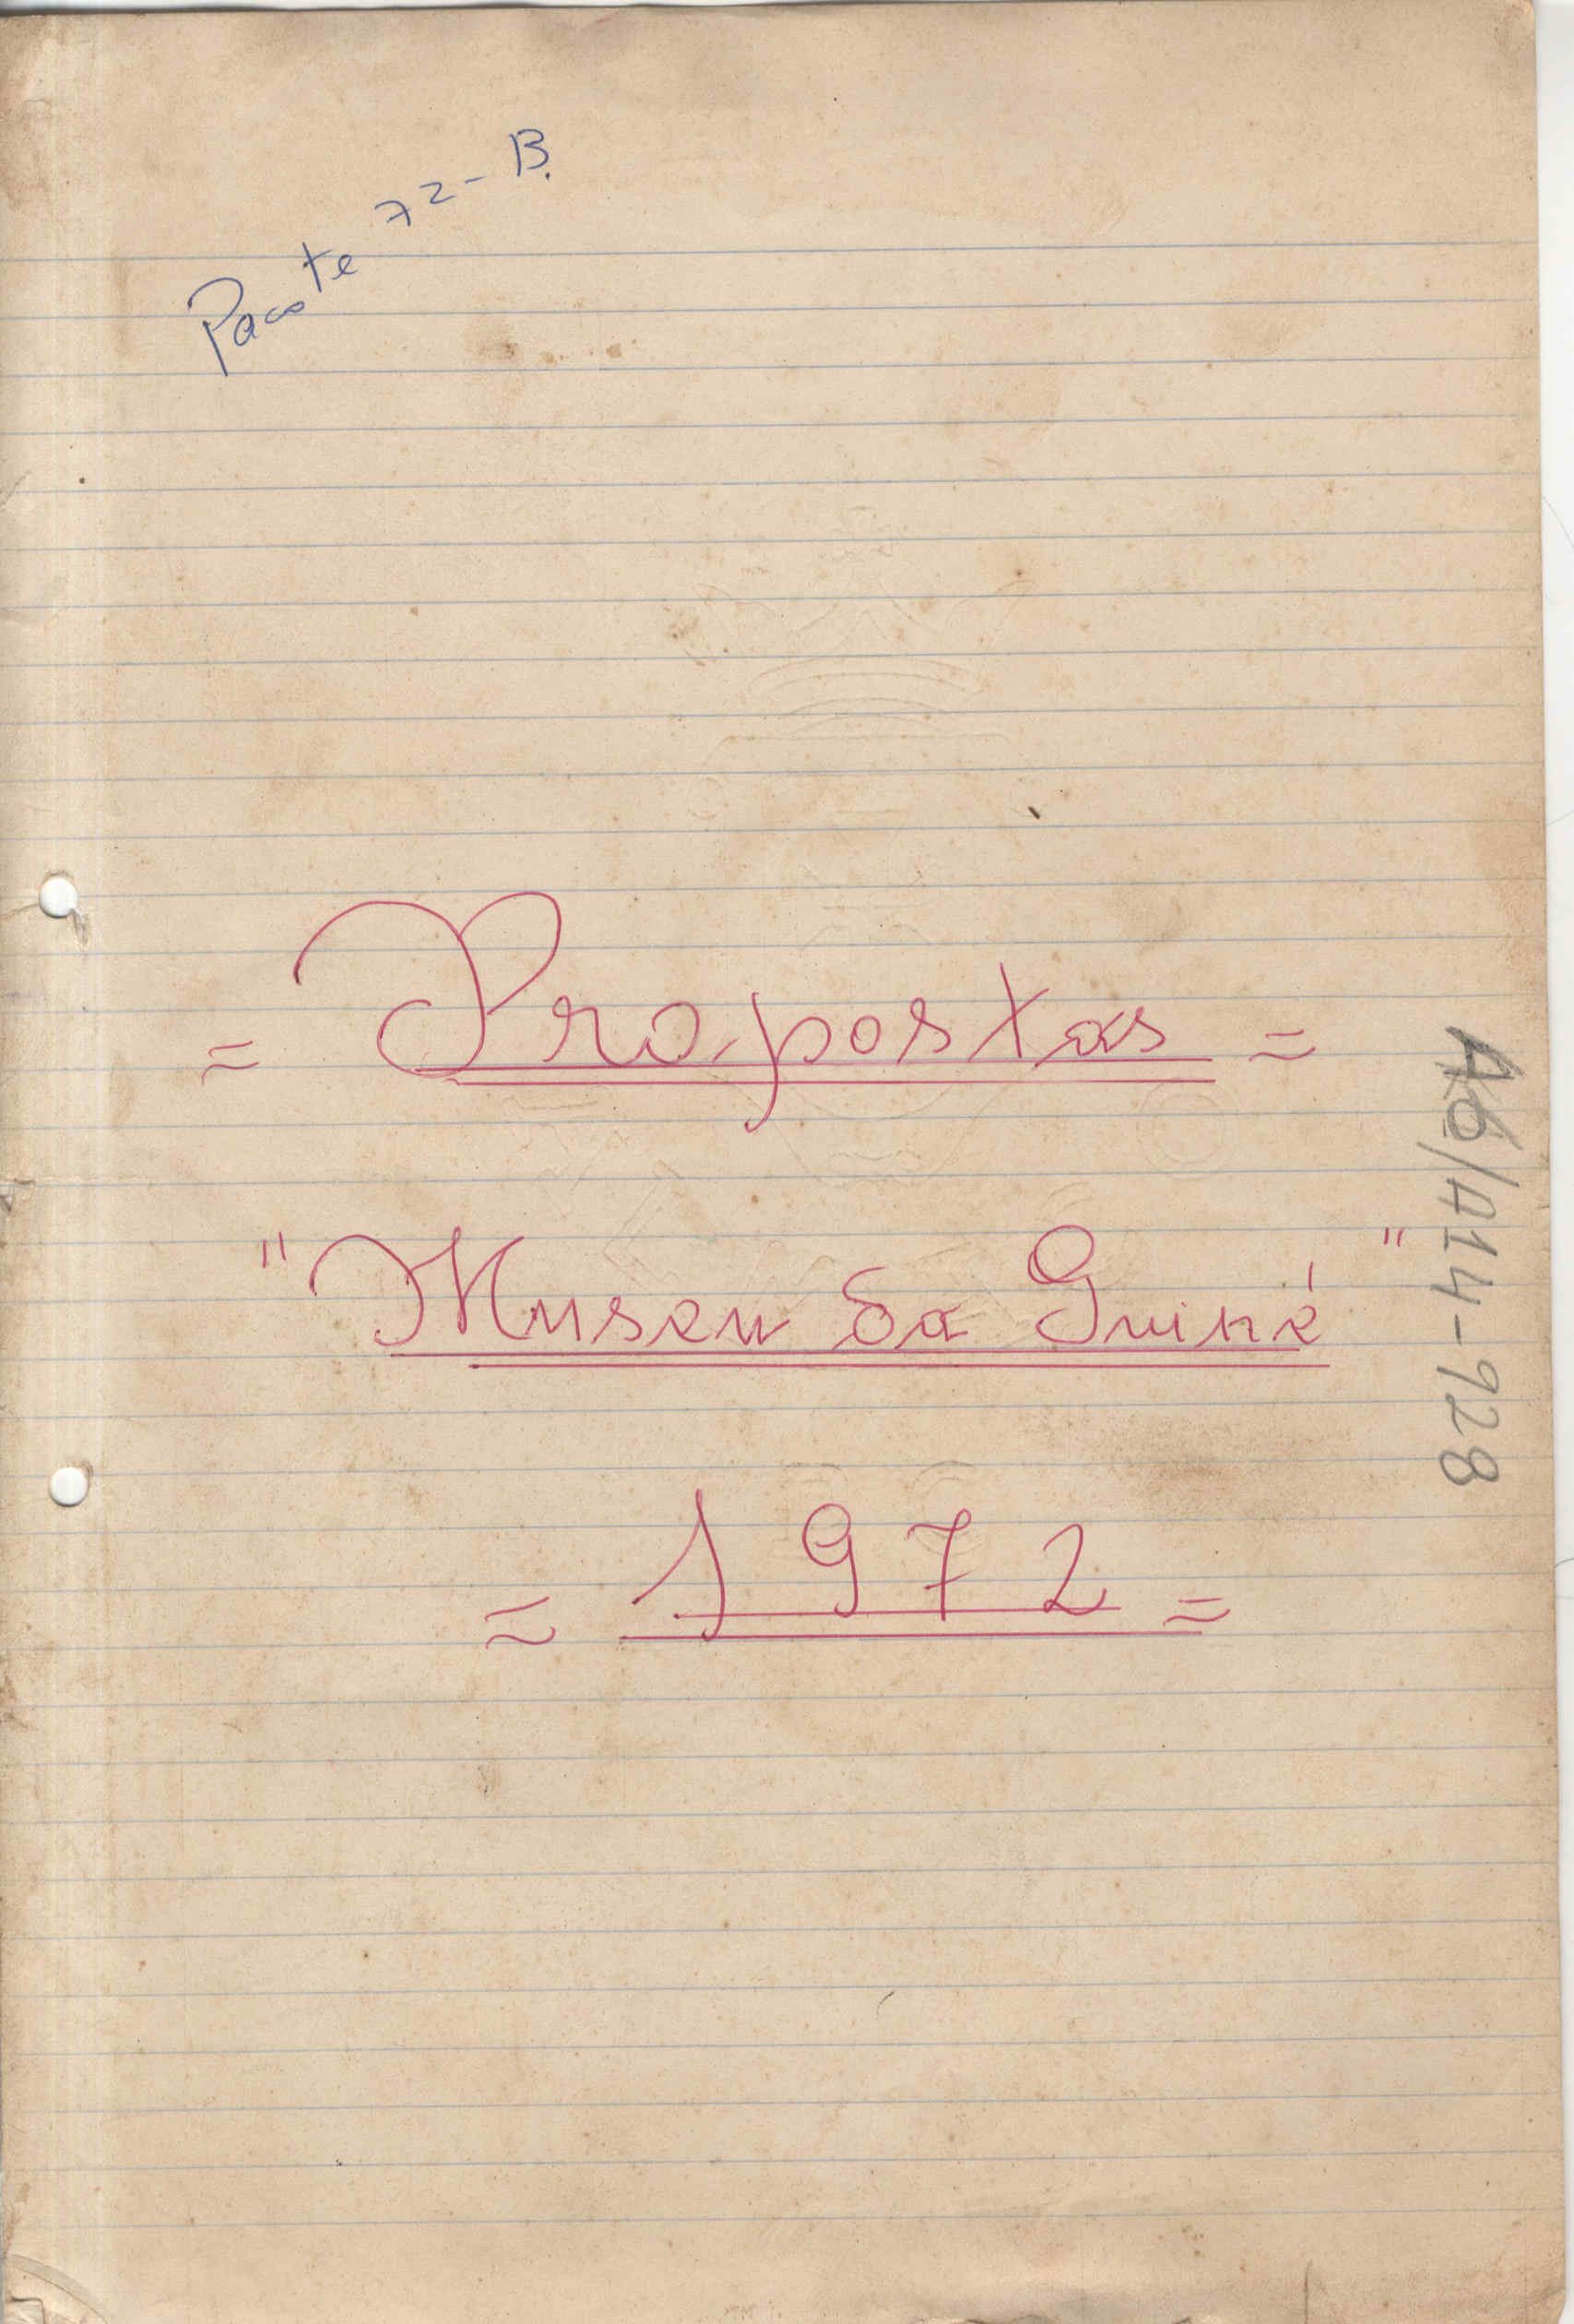 Pacote 72-B.
= Propostas =
"Museu da Guiné"
= 1972 =
A6/A14-928